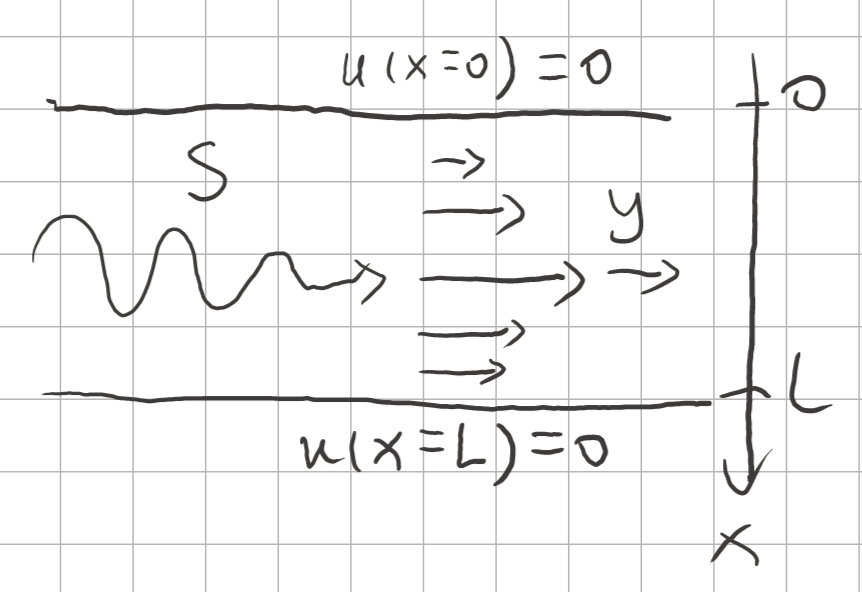 u(x=0)=0
0
S
y
L
u(x=L)=0
x